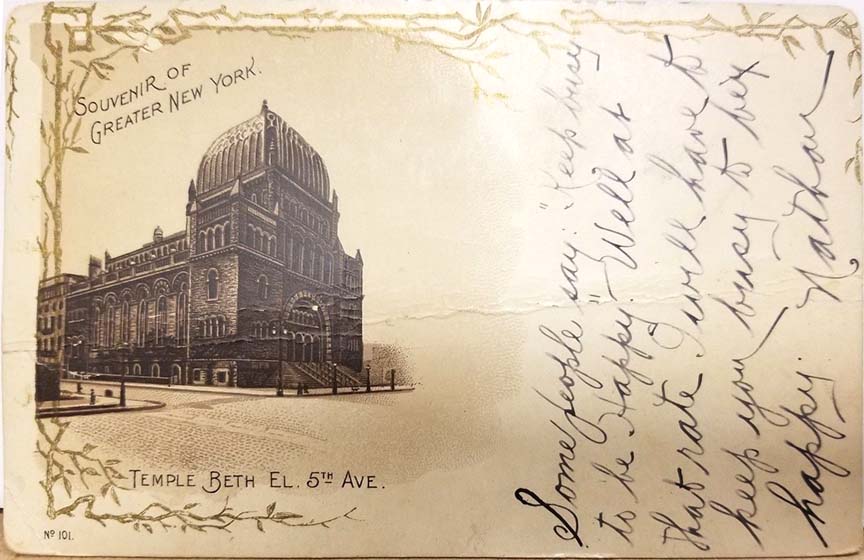 SOUVENIR OF
GREATER NEW YORK.
TEMPLE BETH EL. 5TH AVE.
Nº 101.
Some people say: "Keep busy
to be Happy." Well at
that rate I will have to
keep you busy to be
happy. Nathan